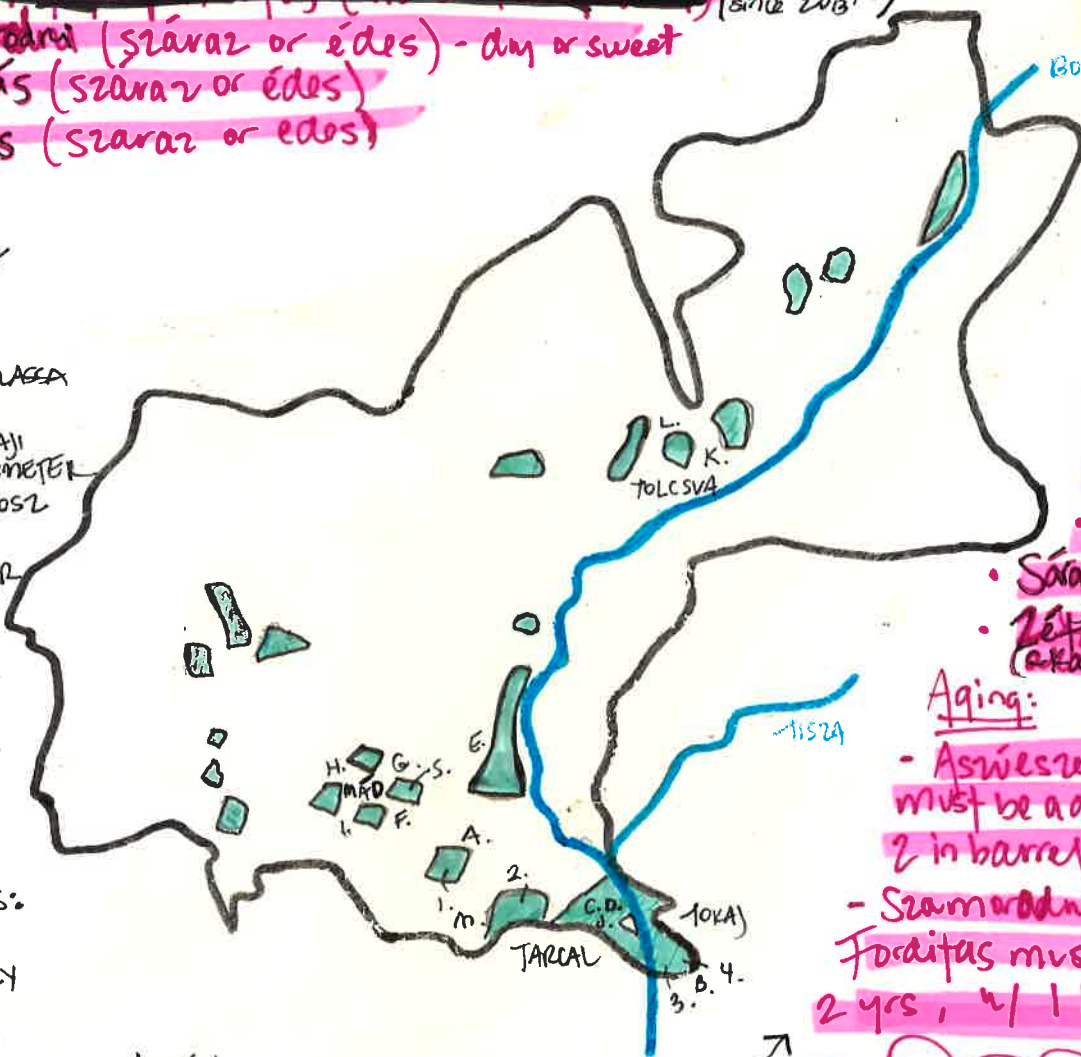 (since 2013
(száraz or édes) - dry or sweet
ás (száraz or édes)
s (száraz or édes)
BO
LASSA
AJI
METER
OSZ
R
L.
K.
TOLCSVA
TISZA
E.
H.
G.
S.
MÁD
I.
F.
A.
1.
2.
M.
C.D.
J.
TOKAJ
TARCAL
B. 4.
3.
S:
Y
Aging:
- Aszúesz
must be a
2 in barrel
- Szamorodn
Forditas mus
2 yrs, w/ 1